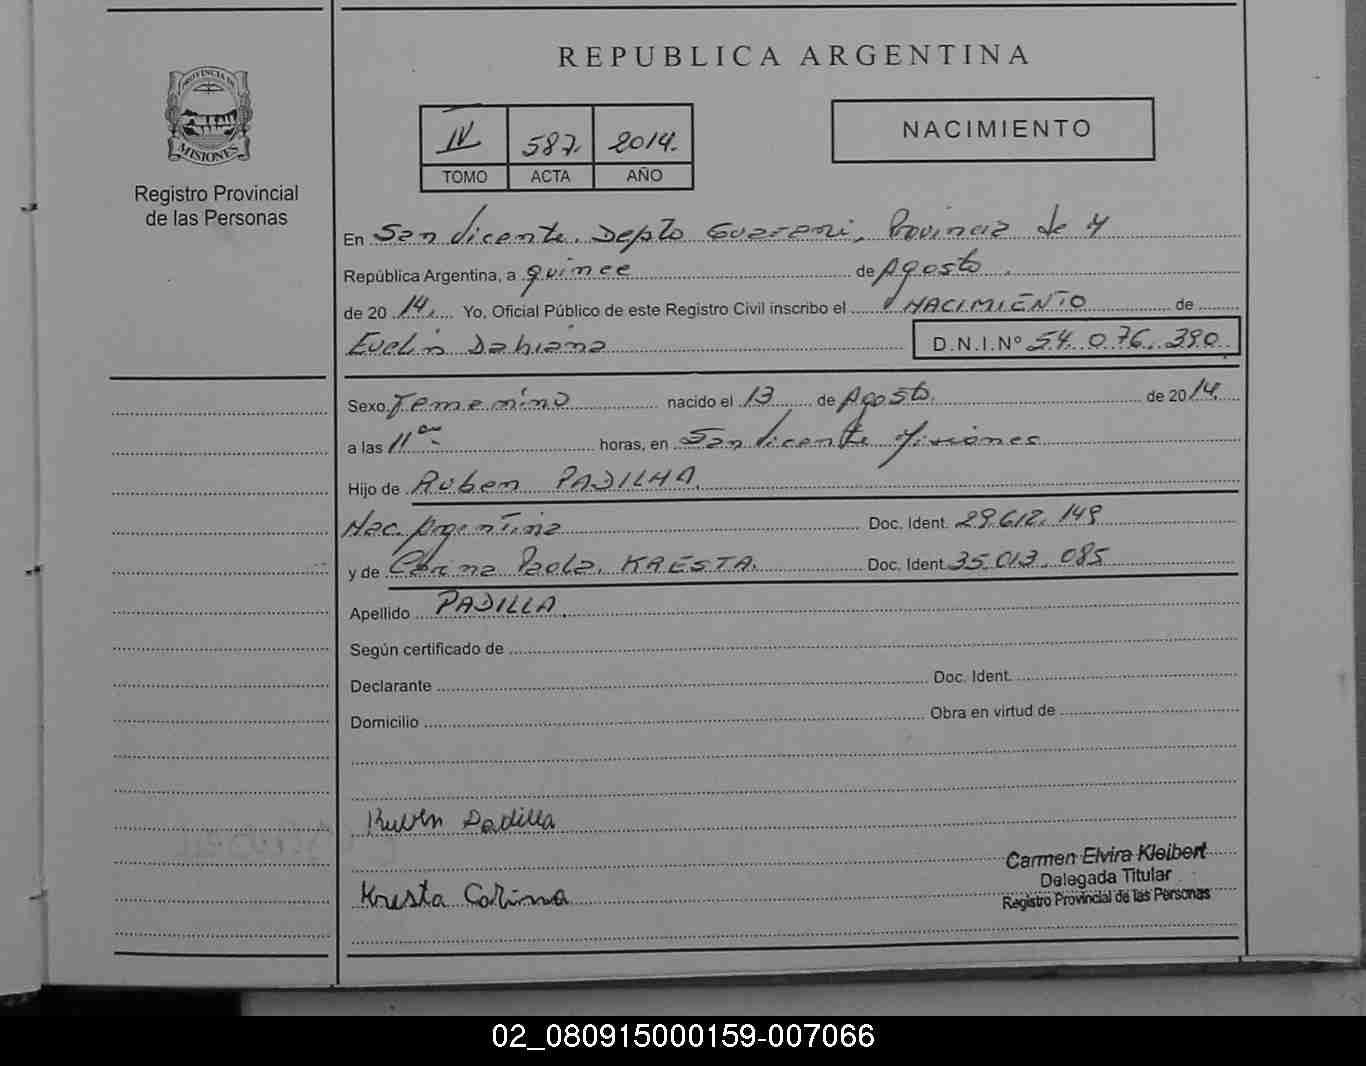 REPUBLICA ARGENTINA
PROVINCIA DE
MISIONES
Registro Provincial
de las Personas
IV 587. 2014.
TOMO ACTA AÑO
NACIMIENTO
En San Vicente. Depto Guarani, Provincia de M
República Argentina, a quince de Agosto.
de 20 14. Yo, Oficial Público de este Registro Civil inscribo el NACIMIENTO de
Evelin Dahiana D.N.I.Nº 54.076.390.
Sexo Femenino nacido el 13 de Agosto. de 20 14.
a las 11 horas, en San Vicente Misiones
Hijo de Ruben PADILHA.
Nac. Argentina Doc. Ident. 29.612.149
y de Corina Paola. KRESTA. Doc. Ident 35.013.085
Apellido PADILLA.
Según certificado de
Declarante Doc. Ident.
Domicilio Obra en virtud de
Ruben Padilla
Carmen Elvira Kleibert
Delegada Titular
Registro Provincial de las Personas
Kresta Corina
02_080915000159-007066